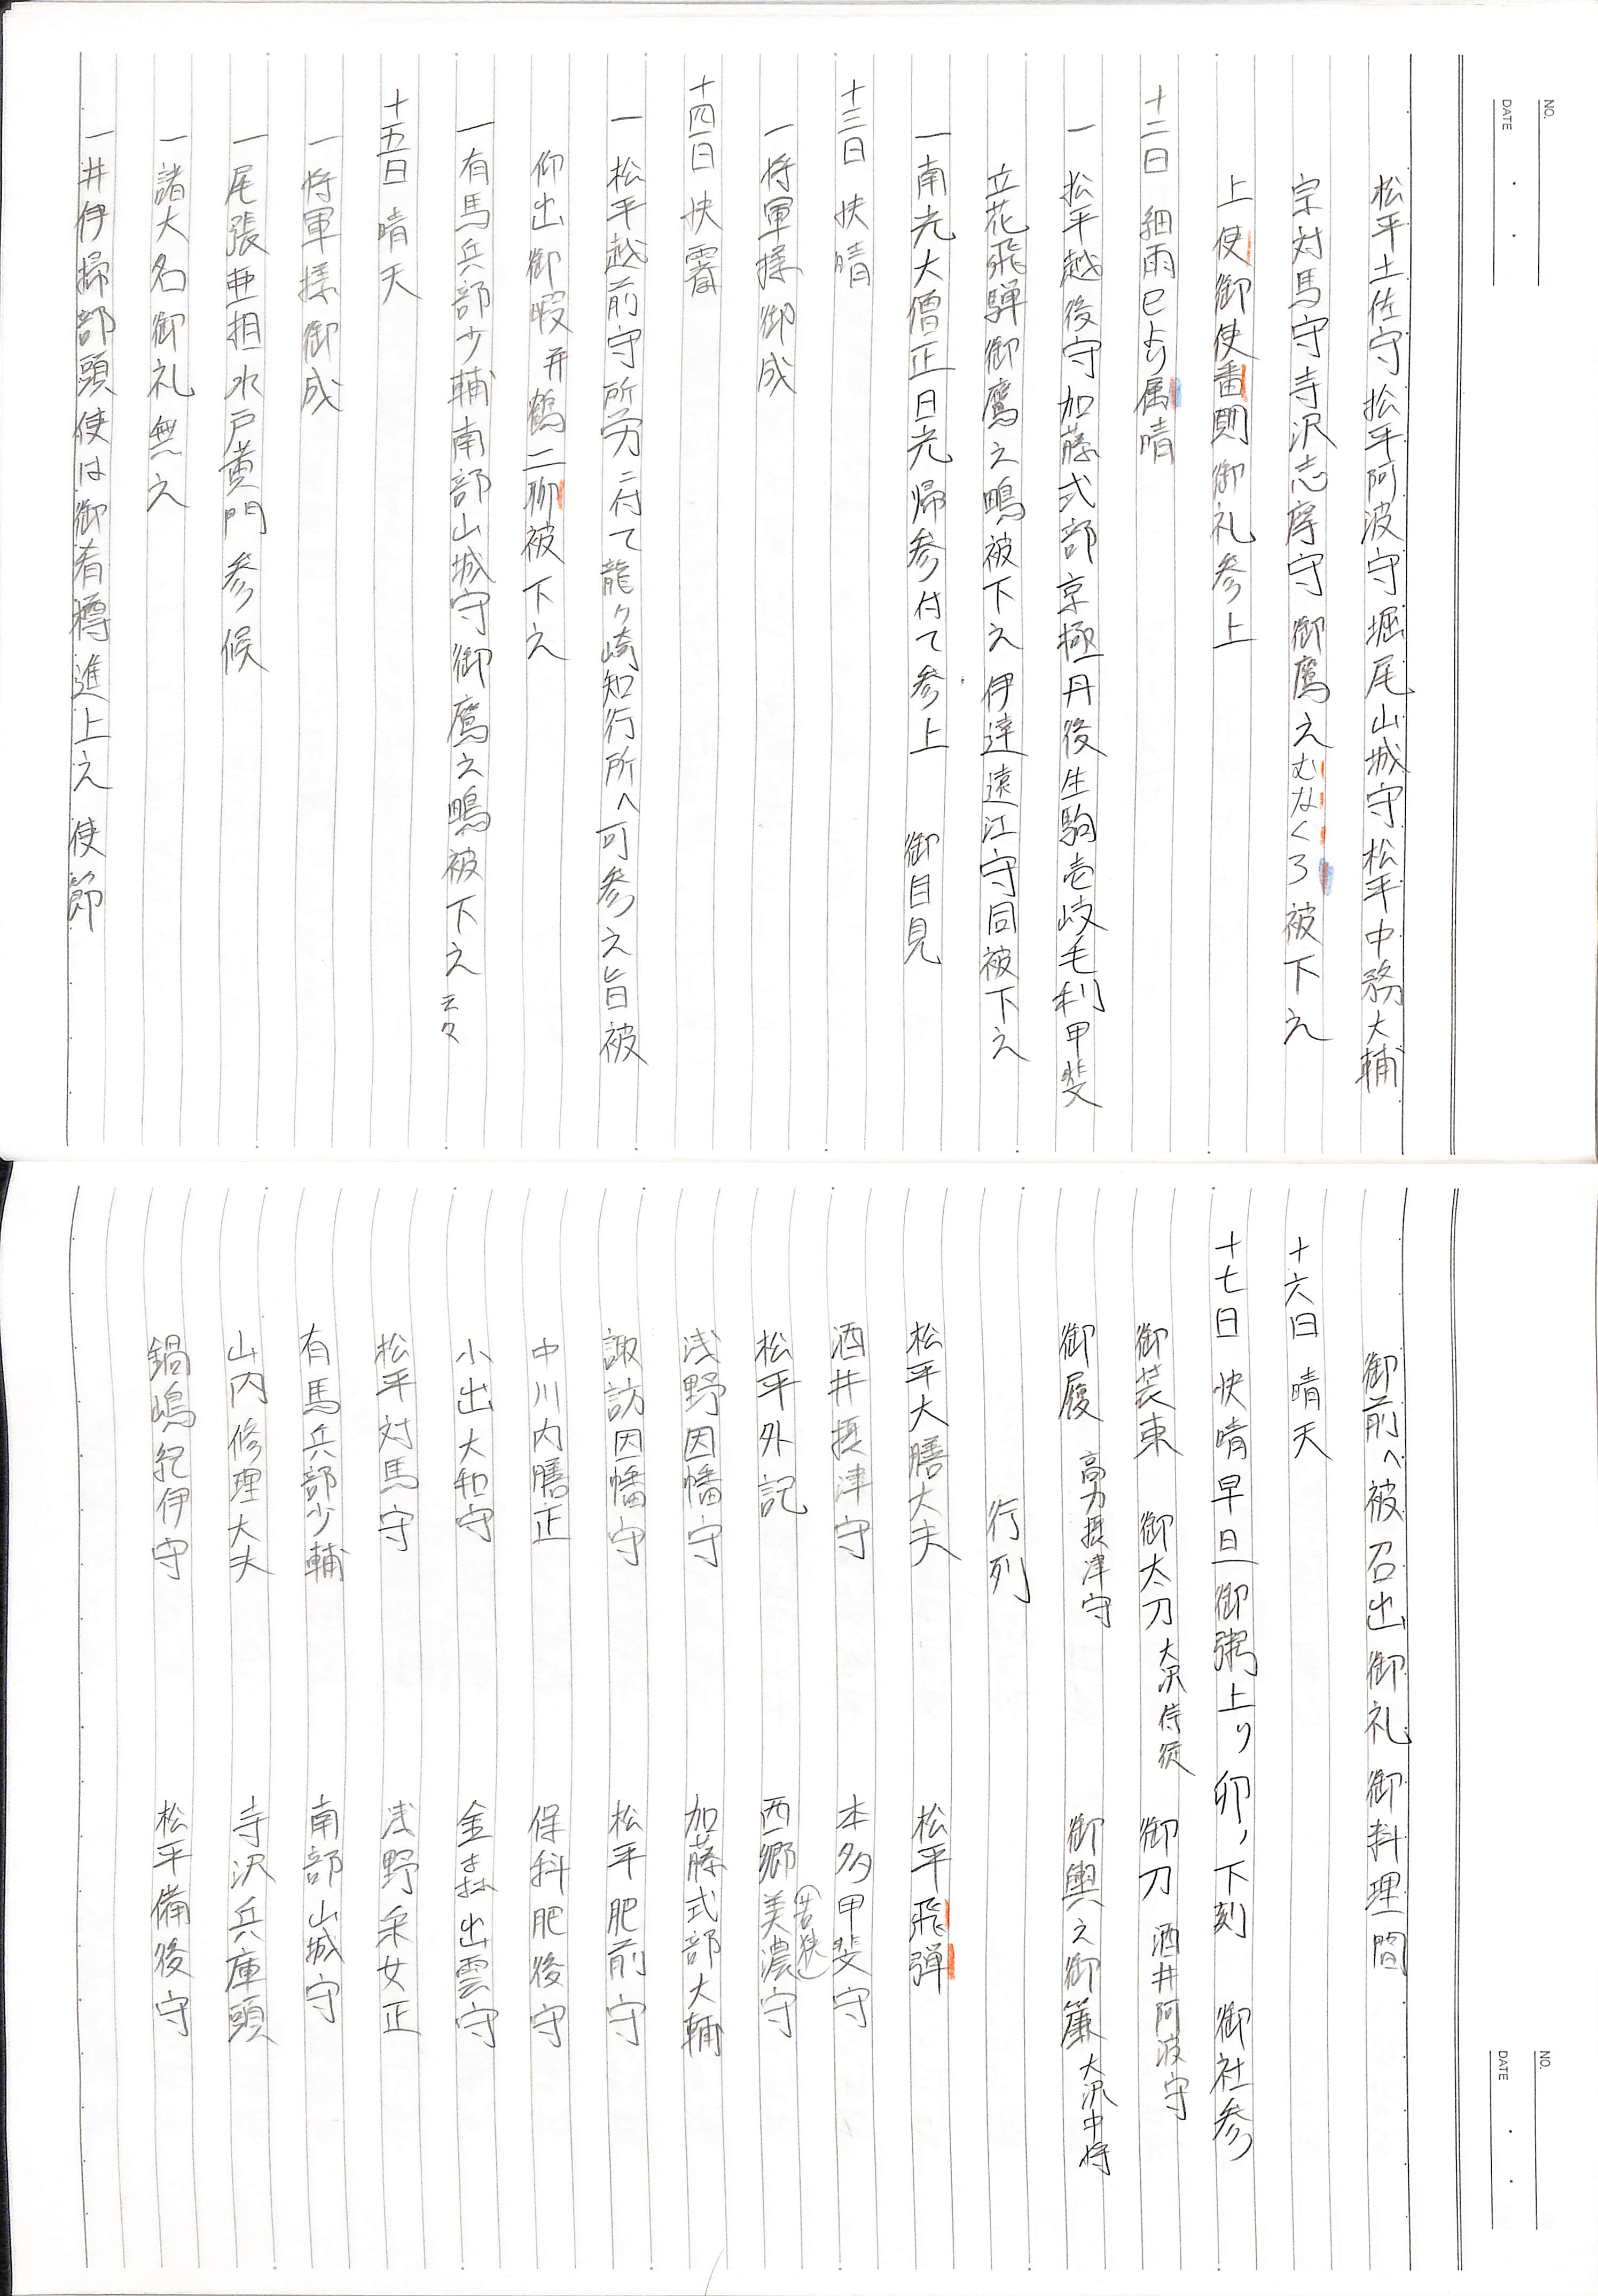 NO.
DATE
松平土佐守松平阿波守堀尾山城守松平中務大輔
宗対馬守寺沢志摩守御鷹えむなくろ被下え
上使御使畵則御礼参上
十二日 細雨巳より属晴
一松平越後守加藤式部京極丹後生駒壱岐毛利甲斐
立花飛騨御鷹之鴫被下え伊達遠江守同被下え
一南光大僧正日光帰参付て参上 御目見
十三日 快晴
一将軍様御成
十四日 快霽
一松平越前守所労ニ付て龍ケ崎知行所へ可参え旨被
仰出御暇并鶴二聊被下え
一有馬兵部少輔南部山城守御鷹之鴫被下え云々
十五日 晴天
一将軍様御成
一尾張亜相水戸黄門参候
一諸大名御礼無え
一井伊掃部頭使は御肴樽進上え使節
NO.
DATE
御前へ被召出御礼御料理間
十六日 晴天
十七日 快晴早旦御粥上り卯ノ下刻 御社参
御装束 御太刀 大沢侍従 御刀 酒井阿波守
御履 高力摂津守 御輿之御簾 大沢中将
行列
松平大膳大夫 松平飛弾
酒井摂津守 本多甲斐守
松平外記 西郷美濃守(若狭)
浅野因幡守 加藤式部大輔
諏訪因幡守 松平肥前守
中川内膳正 保科肥後守
小出大和守 金森出雲守
松平対馬守 浅野采女正
有馬兵部少輔 南部山城守
山内修理大夫 寺沢兵庫頭
鍋嶋紀伊守 松平備後守